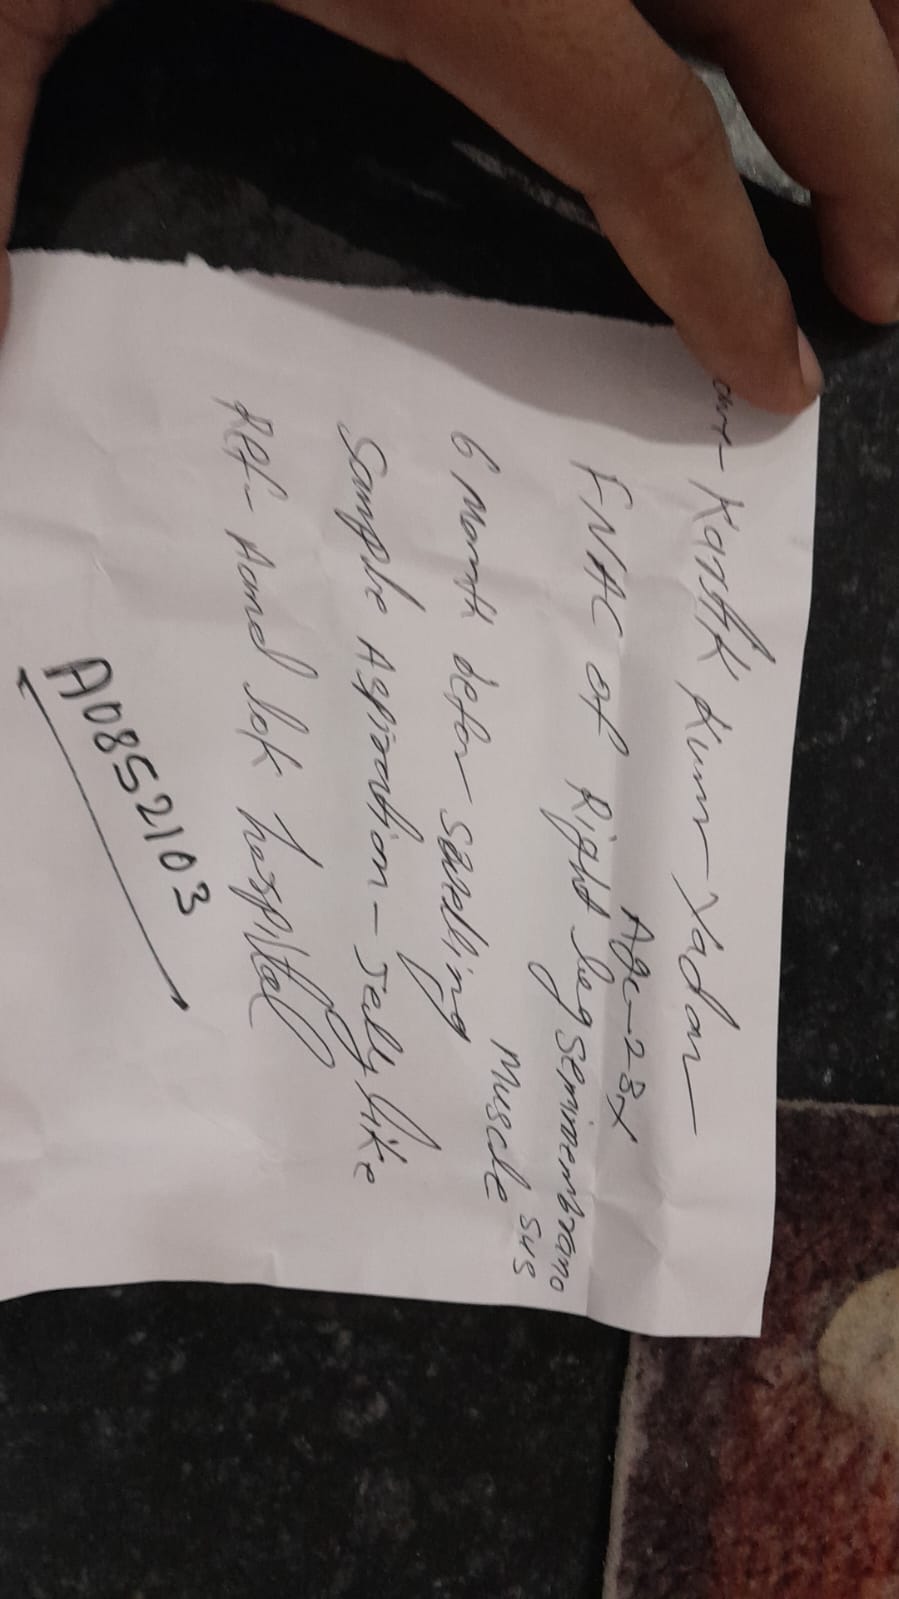 Kartik Kumar Yadav
Age-23y
FNAC of Right leg semimembrano
sus
muscle
6 Month before swelling
Sample Aspiration - Jelly like
Ref- Anand lok hospital
A0852103